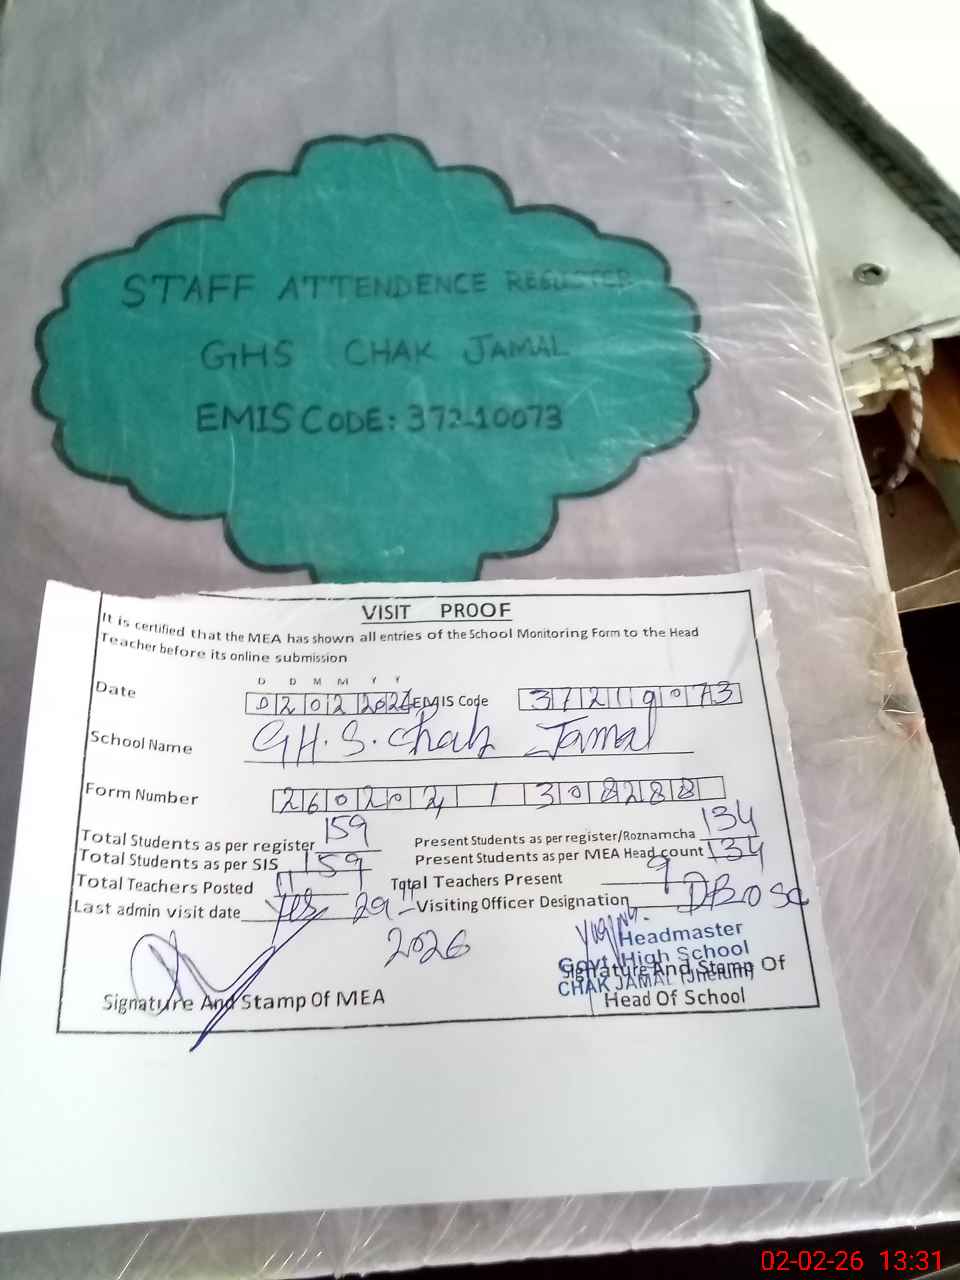 STAFF ATTENDENCE REGISTER
GHS CHAK JAMAL
EMIS CODE: 372-10073
VISIT PROOF
It is certified that the MEA has shown all entries of the School Monitoring Form to the Head
Teacher before its online submission
D D M M Y Y
Date 0202202 EMIS Code 37210073
School Name G.H.S. Chak Jamal
Form Number
Total Students as per register 159
Present Students as per register/Roznamcha 134
Total Students as per SIS 159
Present Students as per MEA Head count 134
Total Teachers Posted 11
Total Teachers Present 9
Last admin visit date Yes 29
Visiting Officer Designation
2026
Headmaster
Govt. High School
CHAK JAMAL (Jhelum)
Signature And Stamp Of MEA
Signature And Stamp Of
Head Of School
02-02-26 13:31